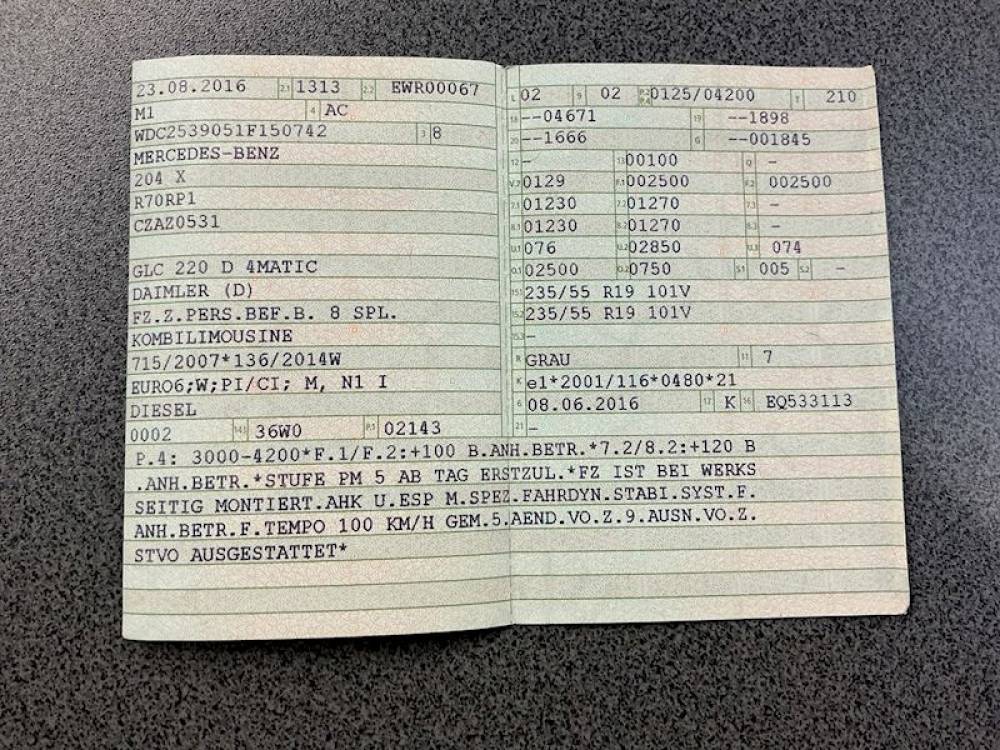 23.08.2016 2.1 1313 2.2 EWR00067
M1 4 AC
WDC2539051F150742 3 8
MERCEDES-BENZ
204 X
R70RP1
CZAZ0531
GLC 220 D 4MATIC
DAIMLER (D)
FZ.Z.PERS.BEF.B. 8 SPL.
KOMBILIMOUSINE
715/2007*136/2014W
EURO6;W;PI/CI; M, N1 I
DIESEL
0002 14.1 36W0 P.1 02143
L 02 9 02 P.2 P.4 0125/04200 T 210
18 --04671 19 --1898
20 --1666 G --001845
12 - 13 00100 Q -
V.7 0129 F.1 002500 F.2 002500
7.1 01230 7.2 01270 7.3 -
8.1 01230 8.2 01270 8.3 -
U.1 076 U.2 02850 U.3 074
O.1 02500 O.2 0750 S.1 005 S.2 -
15.1 235/55 R19 101V
15.2 235/55 R19 101V
15.3 -
R GRAU 11 7
K e1*2001/116*0480*21
6 08.06.2016 17 K 16 EQ533113
21 -
P.4: 3000-4200*F.1/F.2:+100 B.ANH.BETR.*7.2/8.2:+120 B
.ANH.BETR.*STUFE PM 5 AB TAG ERSTZUL.*FZ IST BEI WERKS
SEITIG MONTIERT.AHK U.ESP M.SPEZ.FAHRDYN.STABI.SYST.F.
ANH.BETR.F.TEMPO 100 KM/H GEM.5.AEND.VO.Z.9.AUSN.VO.Z.
STVO AUSGESTATTET*